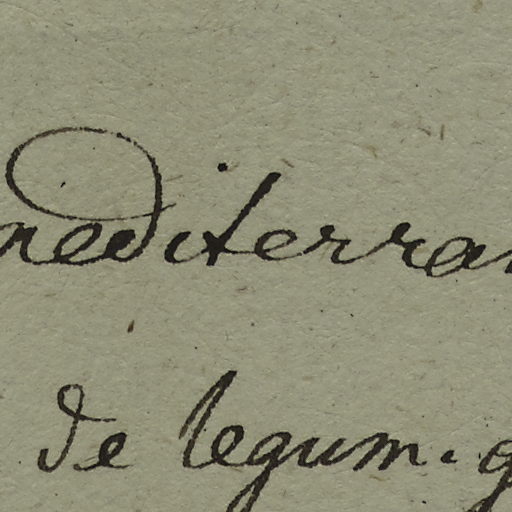 mediterran
de legum. g